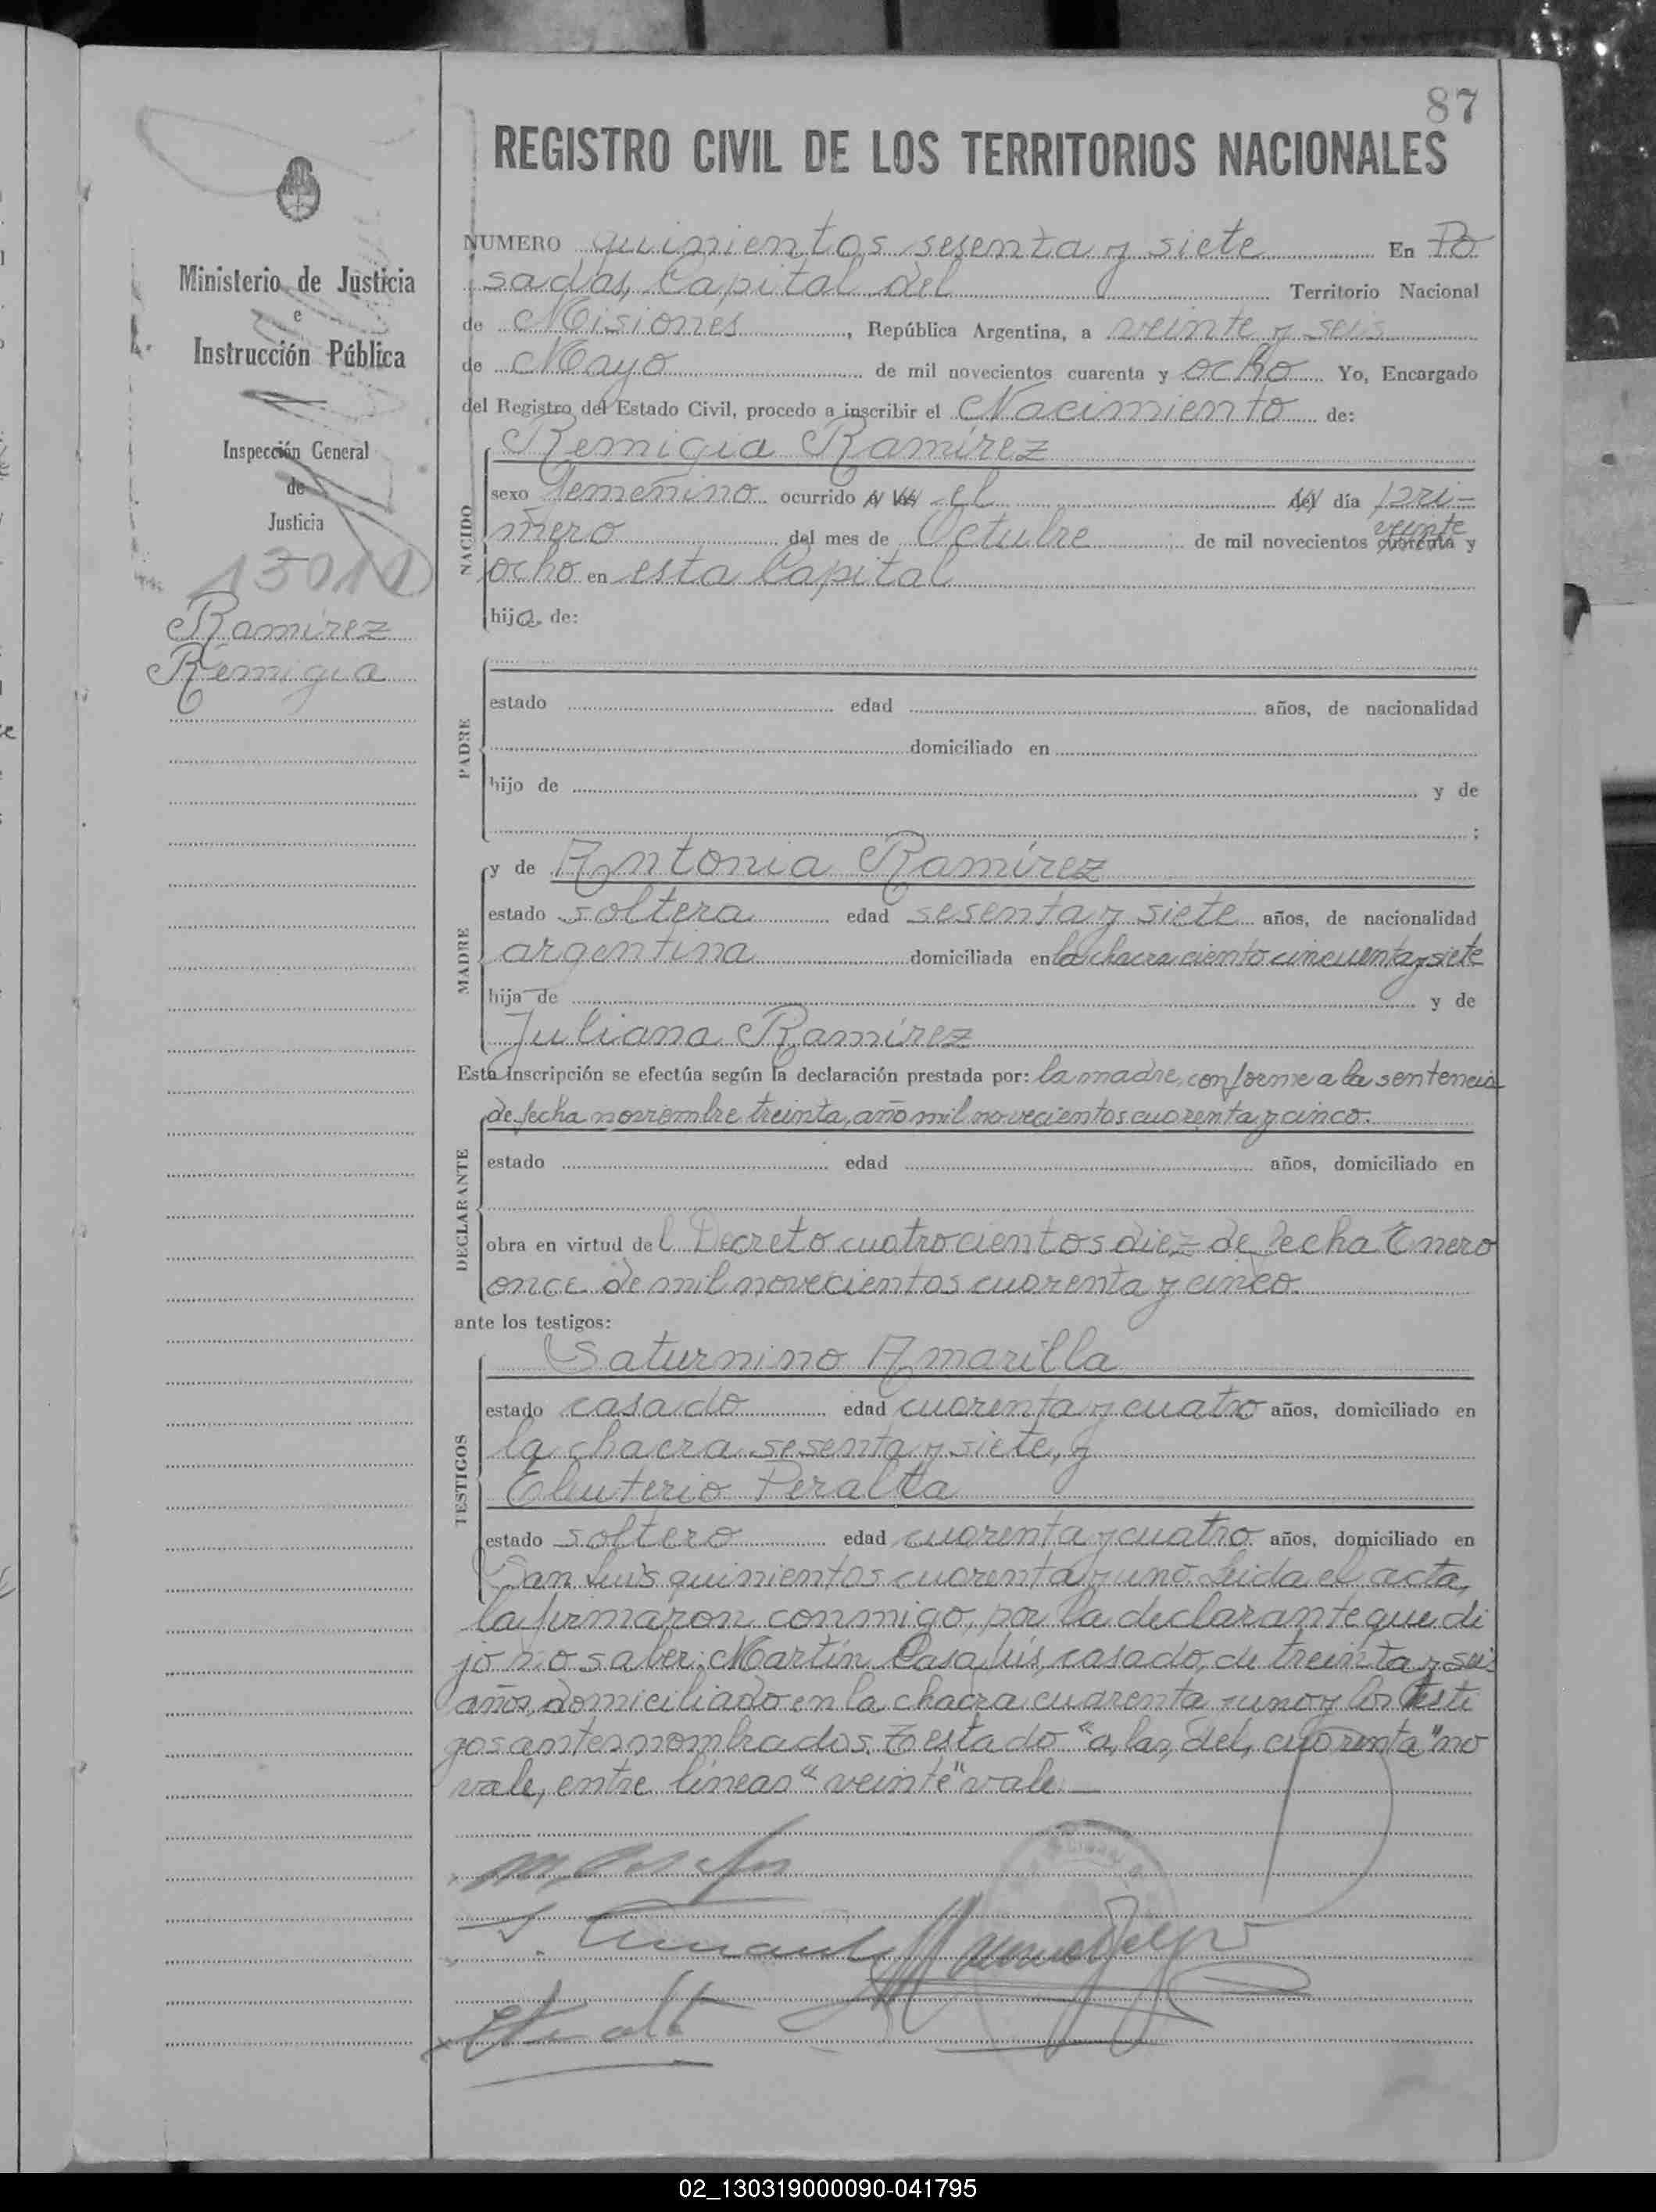 87
REGISTRO CIVIL DE LOS TERRITORIOS NACIONALES
Ministerio de Justicia
e
Instrucción Pública
Inspección General
de
Justicia
Ramírez
Remigia
NUMERO quinientos sesenta y siete En Po
sadas, Capital del Territorio Nacional
de Misiones, República Argentina, a veinte y seis
de Mayo de mil novecientos cuarenta y ocho Yo, Encargado
del Registro del Estado Civil, procedo a inscribir el Nacimiento de:
NACIDO
Remigia Ramírez
sexo femenino ocurrido a las el del día pri-
mero del mes de Octubre de mil novecientos cuarenta veinte y
ocho en esta Capital
hija de:
PADRE
estado edad años, de nacionalidad
domiciliado en
hijo de y de
;
MADRE
y de Antonia Ramírez
estado soltera edad sesenta y siete años, de nacionalidad
argentina domiciliada en la chacra ciento cincuenta y siete
hija de y de
Juliana Ramírez
Esta inscripción se efectúa según la declaración prestada por: la madre, conforme a la sentencia
DECLARANTE
de fecha noviembre treinta, año mil novecientos cuarenta y cinco.
estado edad años, domiciliado en
obra en virtud del Decreto cuatrocientos diez de fecha Enero
once de mil novecientos cuarenta y cinco.
ante los testigos:
TESTIGOS
Saturnino Amarilla
estado casado edad cuarenta y cuatro años, domiciliado en
la chacra sesenta y siete, y
Eleuterio Peralta
estado soltero edad cuarenta y cuatro años, domiciliado en
San Luis quinientos cuarenta y uno. Leida el acta,
la firmaron conmigo, por la declarante que di
jo no saber; Martín Casafús, casado, de treinta y seis
años, domiciliado en la chacra cuarenta y uno y los testi
gos antes nombrados. Testado "a, las, del, cuarenta" no
vale, entre líneas "veinte" vale.—
02_130319000090-041795